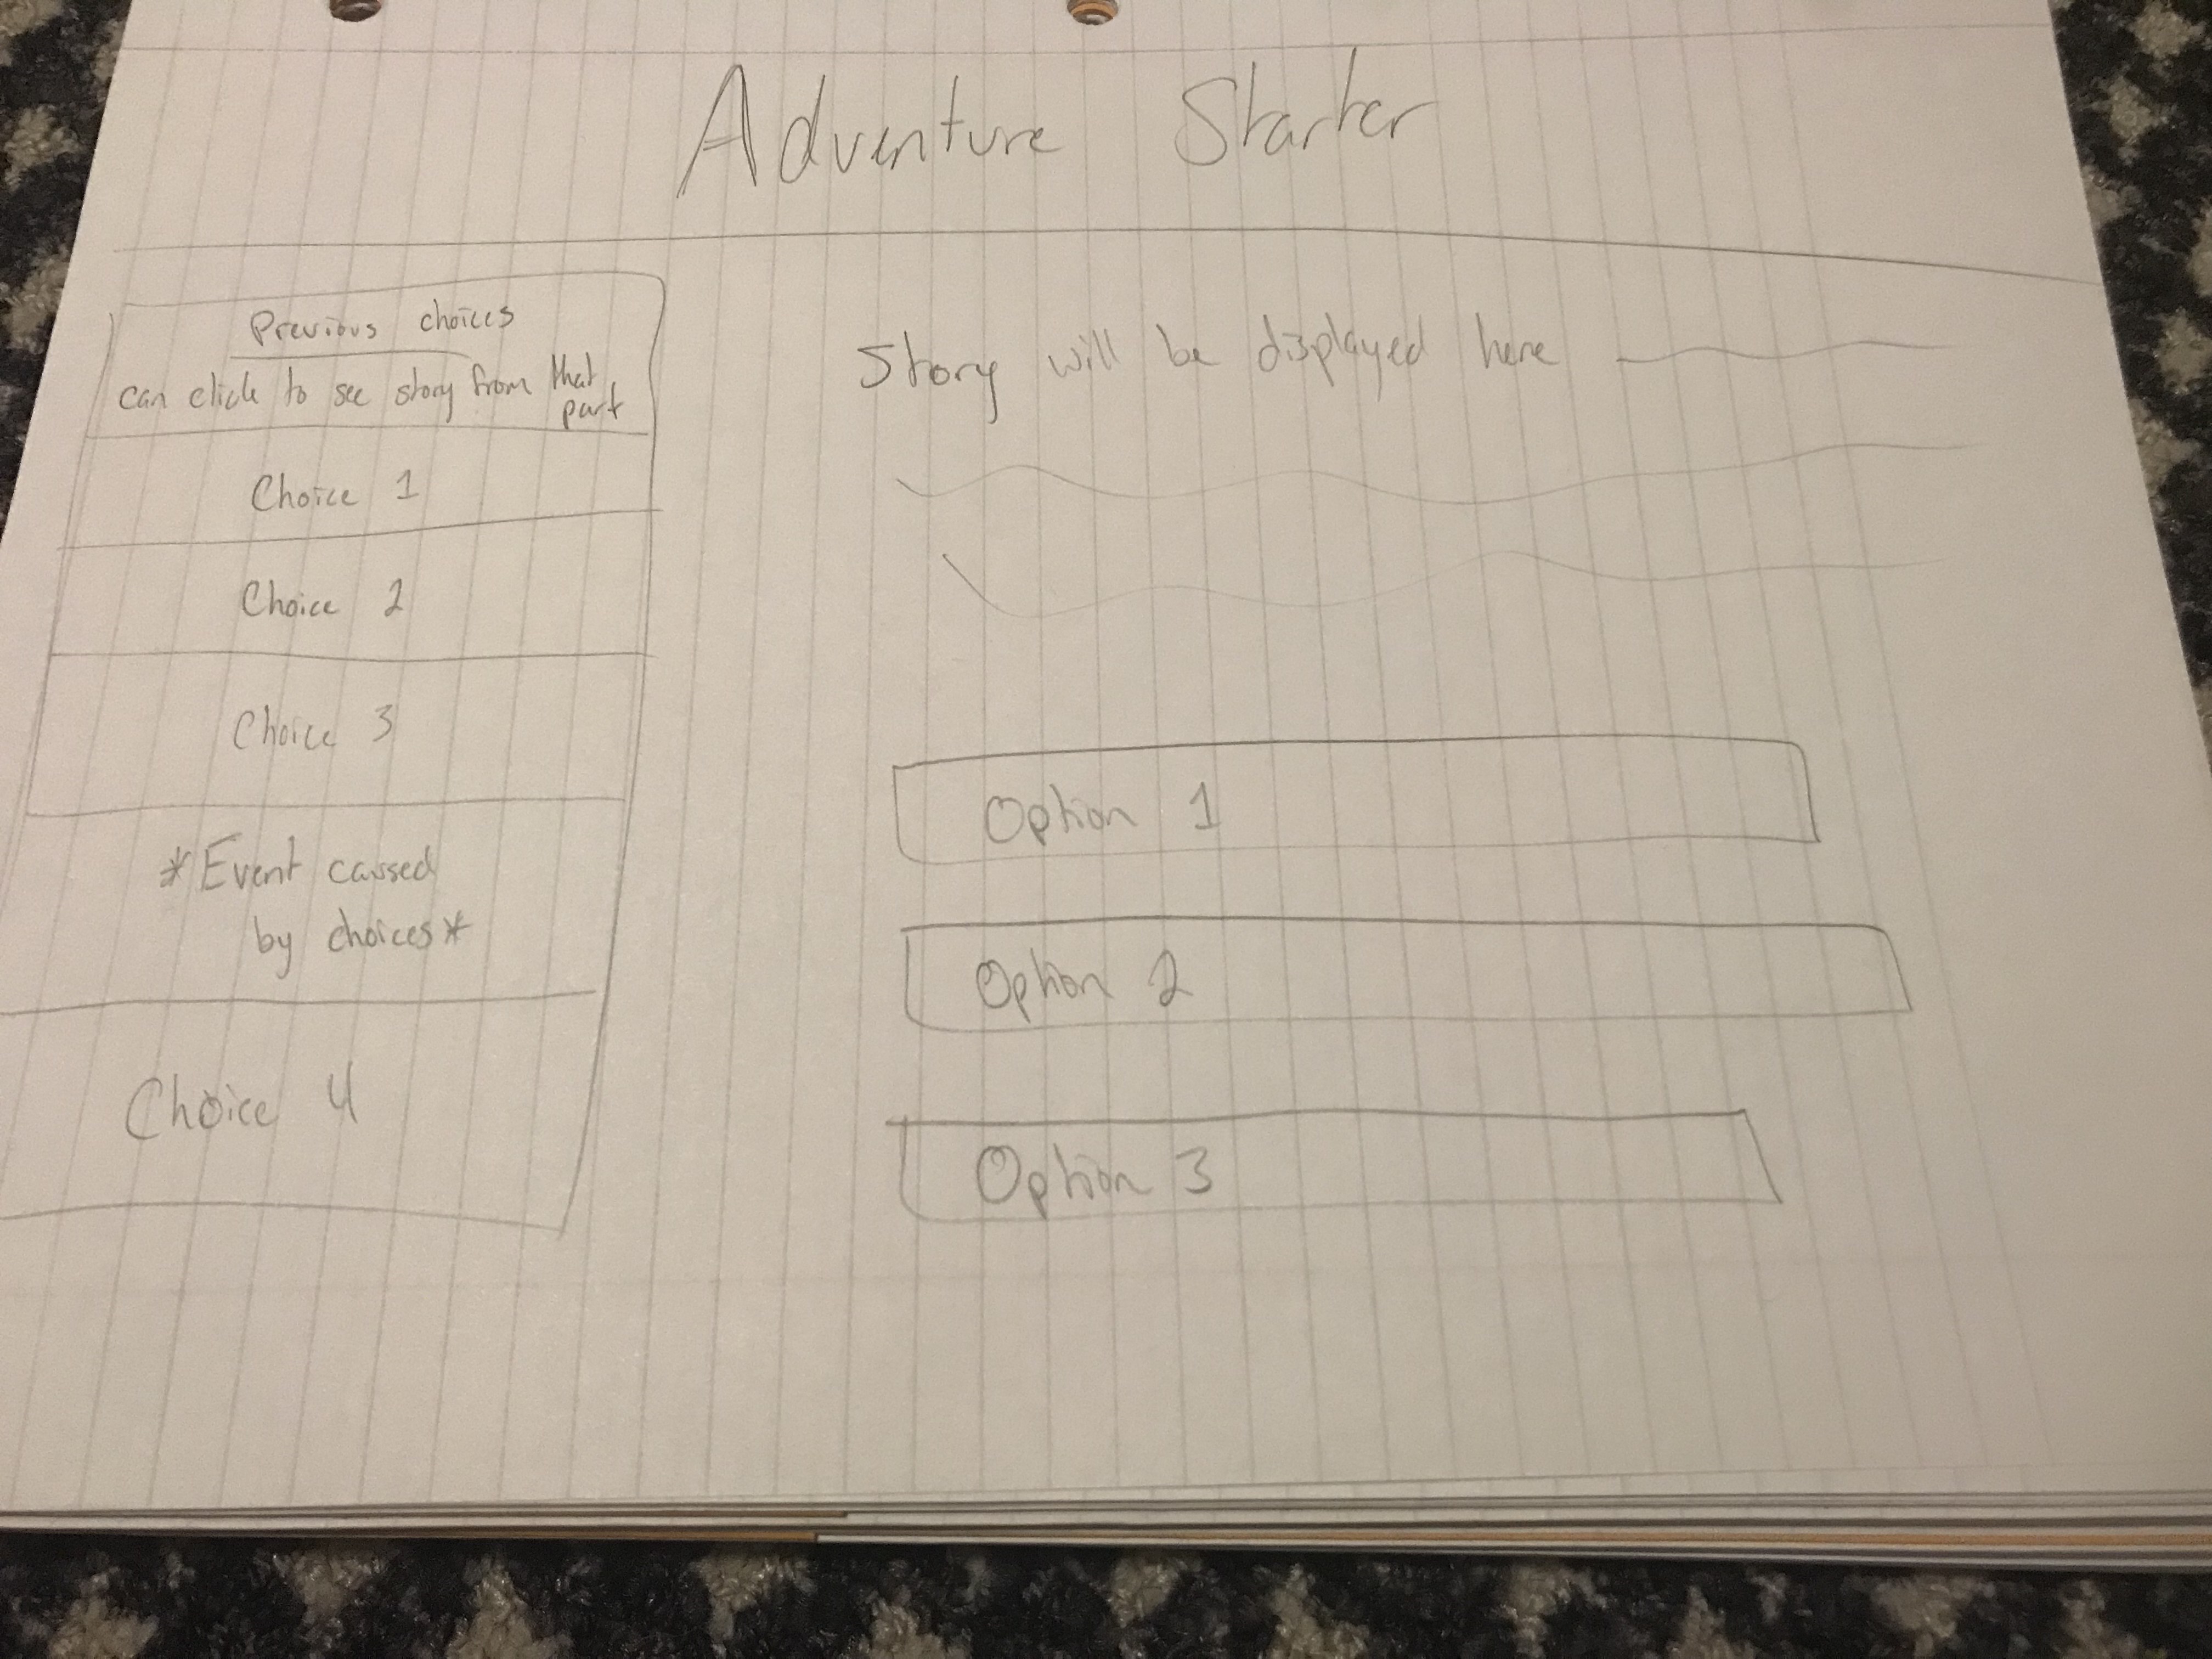 Adventure Starter
Previous choices
can click to see story from that
part
Choice 1
Choice 2
Choice 3
*Event caused
by choices*
Choice 4
Story will be displayed here
Option 1
Option 2
Option 3